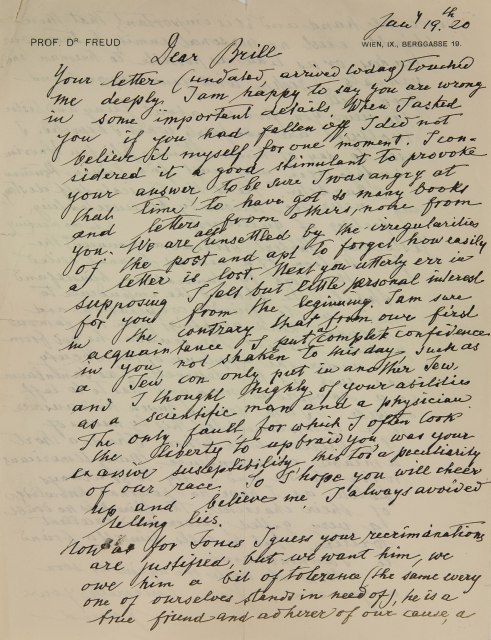 Jany 19.th 20
PROF. DR FREUD
WIEN, IX., BERGGASSE 19.
Dear Brill
Your letter (undated, arrived today) touched
me deeply. I am happy to say you are wrong
in some important details. When I asked
you if you had fallen off, I did not
believe it myself for one moment. I con-
sidered it a good stimulant to provoke
your answer. To be sure I was angry at
that time to have got so many books
and letters from others, none from
you. We are all unsettled by the irregularities
of the post and apt to forget how easily
a letter is lost. Next you utterly err in
supposing I felt but little personal interest
for you from the beginning. I am sure
in the contrary that from our first
acquaintance I put a complete confidence
in you, not shaken to this day, such as
a Jew can only put in another Jew,
and I thought highly of your abilities
as a scientific man and a physician
The only fault for which I often took
the liberty to upbraid you was your
exassive susceptibility, this too a peculiarity
of our race. So I hope you will cheer
up and believe me I always avoided
telling lies.
Now as for Jones I guess your recriminations
are justified, but we want him, we
owe him a bit of tolerance (the same every
one of ourselves stands in need of), he is a
true friend and adherer of our cause, a